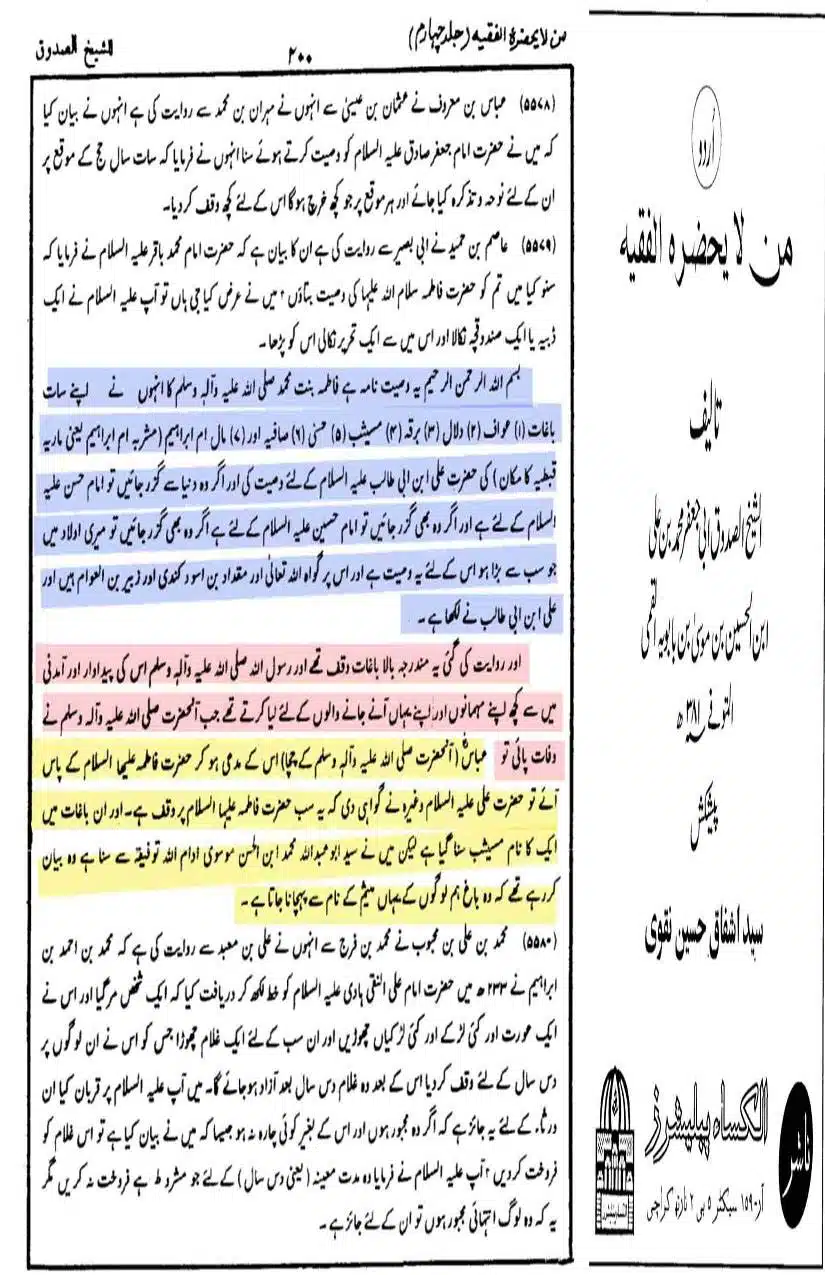 من لا یحضرۃ الفقیہ (جلد چہارم)
۲۰۰
الشیخ الصدوق
(۵۵۷۸) عباس بن معروف نے عثمان بن عیسیٰ سے انہوں نے مہران بن محمد سے روایت کی ہے انہوں نے بیان کیا
کہ میں نے حضرت امام جعفر صادق علیہ السلام کو وصیت کرتے ہوئے سنا انہوں نے فرمایا کہ سات سال حج کے موقع پر
ان کے لئے نوحہ و تذکرہ کیا جائے اور ہر موقع پر جو کچھ خرچ ہوگا اس کے لئے کچھ وقف کردیا۔
(۵۵۷۹) عاصم بن حمید نے ابی بصیر سے روایت کی ہے ان کا بیان ہے کہ حضرت امام محمد باقر علیہ السلام نے فرمایا کہ
سنو کیا میں تم کو حضرت فاطمہ سلام اللہ علیہا کی وصیت بتاؤں ؟ میں نے عرض کیا جی ہاں تو آپ علیہ السلام نے ایک
ڈبیہ یا ایک صندوقچہ نکالا اور اس میں سے ایک تحریر نکالی اس کو پڑھا۔
بسم اللہ الرحمن الرحیم یہ وصیت نامہ ہے فاطمہ بنت محمد صلی اللہ علیہ وآلہ وسلم کا انہوں نے اپنے سات
باغات (۱) عواف (۲) دلال (۳) برقہ (۴) مسیثب (۵) حسنیٰ (۶) صافیہ اور (۷) مال ام ابراہیم (مشربہ ام ابراہیم یعنی ماریہ
قبطیہ کا مکان) کی حضرت علی ابن ابی طالب علیہ السلام کے لئے وصیت کی اور اگر وہ دنیا سے گزر جائیں تو امام حسن علیہ
السلام کے لئے ہے اور اگر وہ بھی گزر جائیں تو امام حسین علیہ السلام کے لئے ہے اگر وہ بھی گزر جائیں تو میری اولاد میں
جو سب سے بڑا ہو اس کے لئے یہ وصیت ہے اور اس پر گواہ اللہ تعالیٰ اور مقداد بن اسود کندی اور زبیر بن العوام ہیں اور
علی ابن ابی طالب نے لکھا ہے ۔
اور روایت کی گئی یہ مندرجہ بالا باغات وقف تھے اور رسول اللہ صلی اللہ علیہ وآلہ وسلم اس کی پیداوار اور آمدنی
میں سے کچھ اپنے مہمانوں اور اپنے یہاں آنے جانے والوں کے لئے لیا کرتے تھے جب آنحضرت صلی اللہ علیہ وآلہ وسلم نے
وفات پائی تو عباسؓ (آنحضرت صلی اللہ علیہ وآلہ وسلم کے چچا) اس کے مدعی ہو کر حضرت فاطمہ علیہا السلام کے پاس
آئے تو حضرت علی علیہ السلام وغیرہ نے گواہی دی کہ یہ سب حضرت فاطمہ علیہا السلام پر وقف ہے۔ اور ان باغات میں
ایک کا نام مسیثب سنا گیا ہے لیکن میں نے سید ابو عبداللہ محمد ابن الحسن موسوی ادام اللہ توفیقہ سے سنا ہے وہ بیان
کر رہے تھے کہ وہ باغ ہم لوگوں کے یہاں میثم کے نام سے پہچانا جاتا ہے ۔
(۵۵۸۰) محمد بن علی بن محبوب نے محمد بن فرج سے انہوں نے علی بن معبد سے روایت کی ہے کہ محمد بن احمد بن
ابراہیم نے ۲۳۳ ھ میں حضرت امام علی النقی ہادی علیہ السلام کو خط لکھ کر دریافت کیا کہ ایک شخص مرگیا اور اس نے
ایک عورت اور کئی لڑکے اور کئی لڑکیاں چھوڑیں اور ان سب کے لئے ایک غلام چھوڑا جس کو اس نے ان لوگوں پر
دس سال کے لئے وقف کردیا اس کے بعد وہ غلام دس سال بعد آزاد ہوجائے گا۔ میں آپ علیہ السلام پر قربان کیا ان
ورثاء کے لئے یہ جائز ہے کہ اگر وہ مجبور ہوں اور اس کے بغیر کوئی چارہ نہ ہو جیسا کہ میں نے بیان کیا ہے تو اس غلام کو
فروخت کردیں ؟ آپ علیہ السلام نے فرمایا وہ مدت معینہ (یعنی دس سال) کے لئے جو مشروط ہے فروخت نہ کریں مگر
یہ کہ وہ لوگ انتہائی مجبور ہوں تو ان کے لئے جائز ہے ۔
اُردو
من لا یحضرہ الفقیہ
تالیف
الشیخ الصدوق ابی جعفر محمد بن علی
ابن الحسین بن موسیٰ بن بابویہ القمی
المتوفی ۳۸۱ھ
پیشکش
سید اشفاق حسین نقوی
ناشر
الکساء پبلیشرز
آر-۱۵۹ سیکٹر ۵ بی ۲ نارتھ کراچی